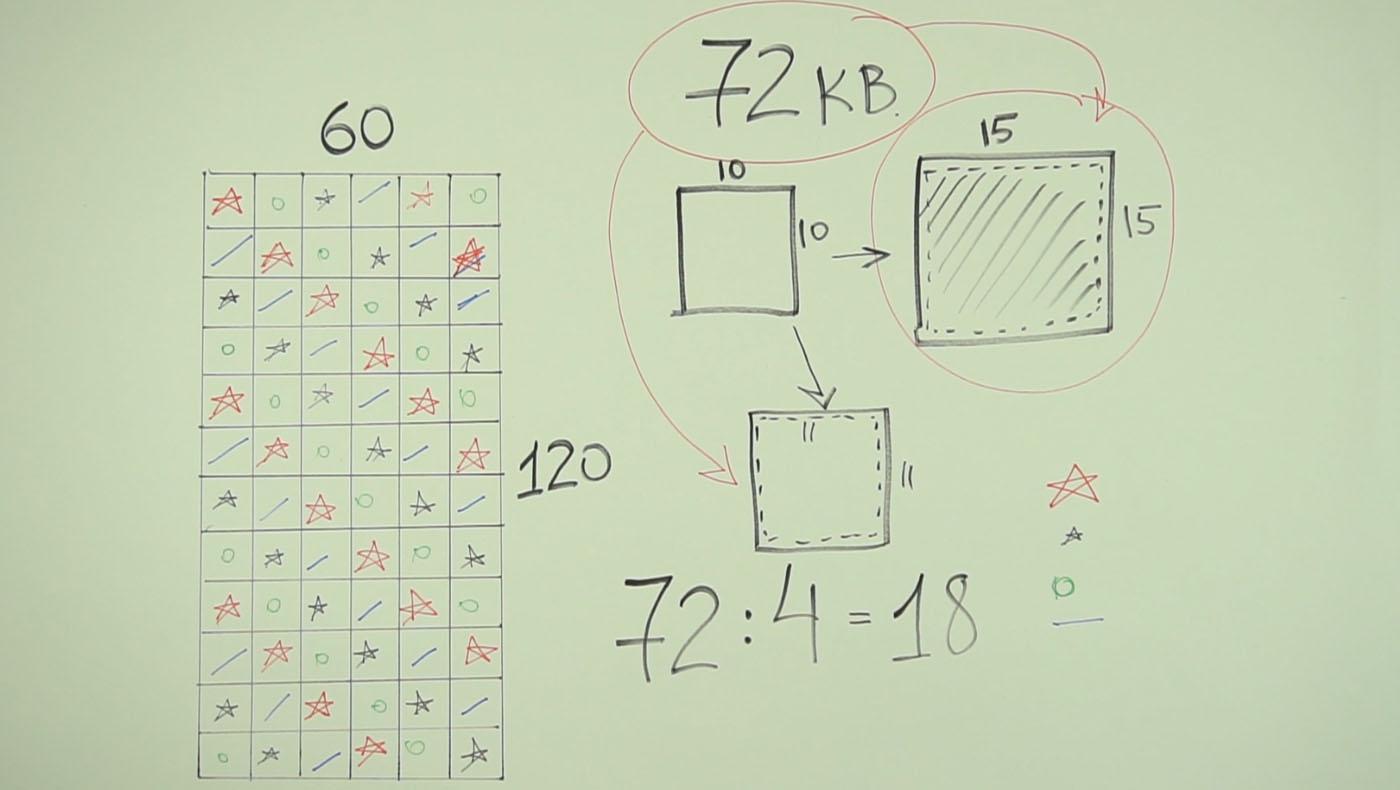 72 КВ.
60
15
10
10
15
120
11
11
72 : 4 = 18